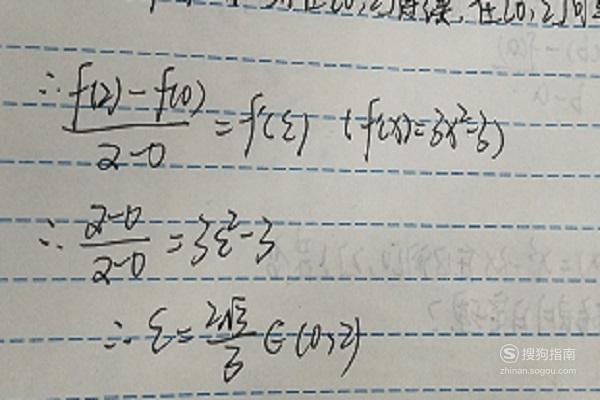 在[0,2]连续,在(0,2)可导
∴ f(2)-f(0) / 2-0 = f'(ξ) ( f'(x)=3x²-3)
∴ 2-0 / 2-0 = 3ξ²-3
∴ ξ= 2√3 / 3 ∈ (0,2)
搜狗指南
zhinan.sogou.com